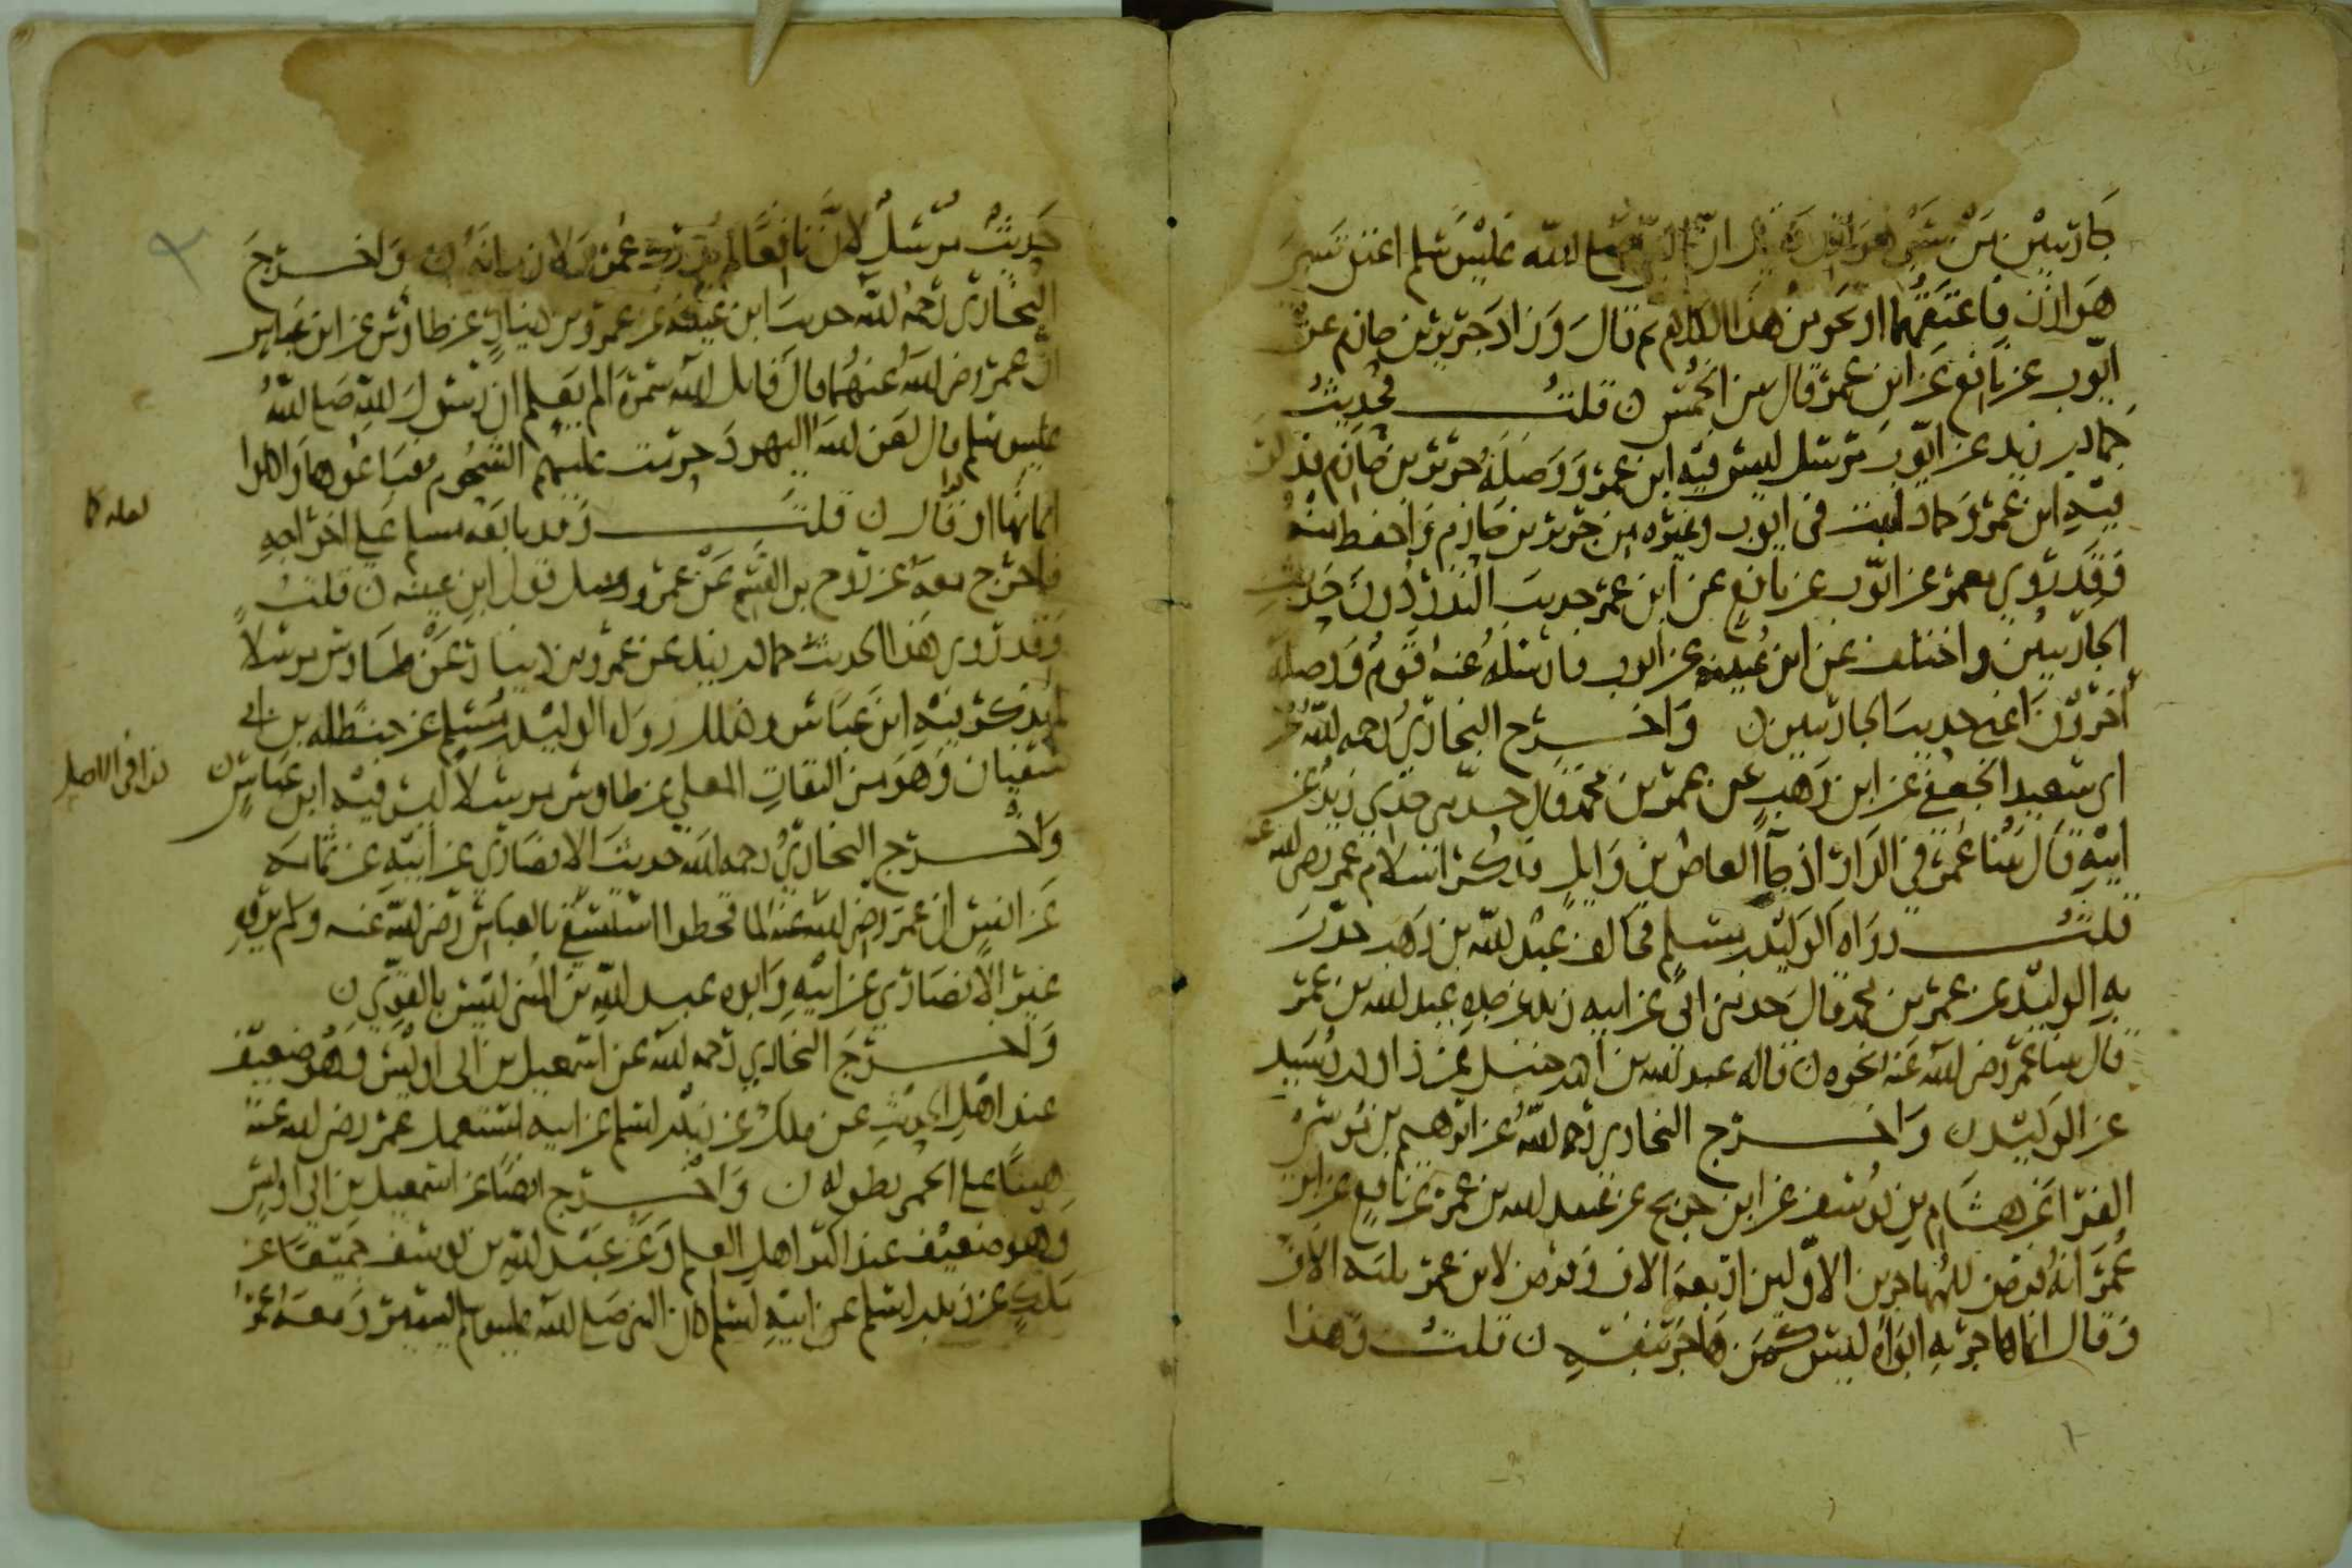 جاريتين من سبي هوازن ان النبي صلى الله عليه وسلم اعتق سبي
هوازن فاعتقهما او نحو من هذا الكلام ثم قال وزاد جرير بن حازم عن
ايوب عن نافع عن ابن عمر قال من الخمس ن قلت فحديث
حماد بن زيد عن ايوب مرسل ليس فيه ابن عمر ووصله جرير بن حازم
فيه ابن عمر وحماد اثبت في ايوب وغيره من جرير بن حازم واحفظ منه
وقد روى معمر عن ايوب عن نافع عن ابن عمر حديث النذر دون حديث
الجاريتين واختلف عن ابن عيينه عن ايوب فارسله عنه قوم ووصله
آخرون اعني حديث الجاريتين ن واخرج البخاري رحمه الله عن
ابي سعيد الجعفي عن ابن وهب عن عمر بن محمد قال حدثني جدي زيد عن
ابيه قال بينا عمر في الدار اذ جآ العاص بن وايل فذكر اسلام عمر رضي الله عنه
قلت رواه الوليد بن مسلم فخالف عبد الله بن وهب حدث
به الوليد عن عمر بن محمد قال حدثني ابي عن ابيه زيد عن جده عبد الله بن عمر
قال بينا عمر رضي الله عنه نحوه ن قاله عبد الله بن احمد بن حنبل عن داود بن رشيد
عن الوليد ن واخرج البخاري رحمه الله عن ابرهيم بن موسى
الفرا عن هشام بن يوسف عن ابن جريج عن عبيد الله بن عمر عن نافع عن ابن
عمر انه فرض للمهاجرين الاولين اربعة الاف وفرض لابن عمر ثلثة الاف
وقال انما هاجر به ابواه ليس كمن هاجر بنفسه ن قلت وهذا
حديث مرسل لان نافعا لم يدرك عمر واخرج
البخاري رحمه الله حديث ابن عيينه عن عمرو بن دينار عن طاوس عن ابن عباس
ان عمر رضي الله عنهما قال قاتل الله سمرة الم يعلم ان رسول الله صلى الله
عليه وسلم قال لعن الله اليهود حرمت عليهم الشحوم فباعوها واكلوا
اثمانها او قال ن قلت وقد تابعه مسلم على اخراجه
فاخرج معه عن روح بن القسم عن عمرو مثل قول ابن عيينه ن قلت
وقد روى هذا الحديث حماد بن زيد عن عمرو بن دينار عن طاوس مرسلا
لم يذكر فيه ابن عباس وكذلك رواه الوليد بن مسلم عن حنظله بن ابي
سفيان وهو من الثقات عن طاوس مرسلا ليس فيه ابن عباس ن
واخرج البخاري رحمه الله حديث الانصاري عن ابيه عن ثمامه
عن انس ان عمر رضي الله عنه لما قحطوا استسقى بالعباس رضي الله عنه ولم يروه
غير الانصاري عن ابيه وابوه عبد الله بن المثنى ليس بالقوي ن
واخرج البخاري رحمه الله عن اسمعيل بن ابي اويس وهو ضعيف
عند اهل الحديث عن ملك عن زيد بن اسلم عن ابيه استعمل عمر رضي الله عنه
هنيا على الحمى بطوله ن واخرج ايضا عن اسمعيل بن ابي اويس
وهو ضعيف عند اكثر اهل العلم وعن عبد الله بن يوسف جميعا عن
ملك عن زيد بن اسلم عن ابيه اسلم كان النبي صلى الله عليه وسلم يسير ومعه عمر
لعله كا
كذا في الاصل